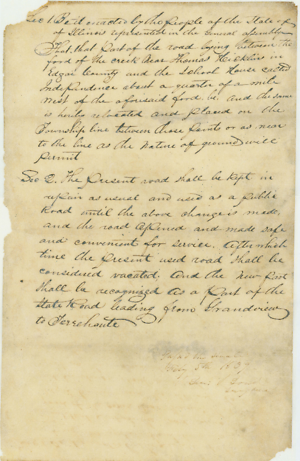 Sec 1 Be it enacted by the People of the State of
of Illinois represented in the General Assembly
That that Part of the road lying between the
ford of the creek near Thomas Hicklins in
Edgar County and the School House called
Independence about a quarter of a mile
West of the aforesaid ford be and the same
is hereby relocated and placed on the
Township line between those points or as near
to the line as the nature of ground will
permit
Sec 2. The Present road shall be kept in
repair as usual and used as a Public
Road until the above change is made,
and the road opened and made safe
and convenient for service. After which
time the Present used road shall be
considered vacated. And the new Part
shall be recognized as a Part of the
state road leading from Grandview
to Terrehaute